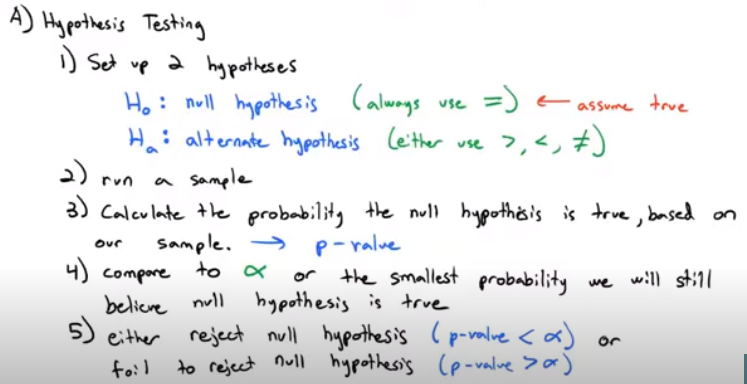 A) Hypothesis Testing
1) Set up 2 hypotheses
H₀: null hypothesis (always use =) ← assume true
Hₐ: alternate hypothesis (either use >, <, ≠)
2) run a sample
3) Calculate the probability the null hypothesis is true, based on
our sample. → p-value
4) compare to α or the smallest probability we will still
believe null hypothesis is true
5) either reject null hypothesis (p-value < α) or
fail to reject null hypothesis (p-value > α)